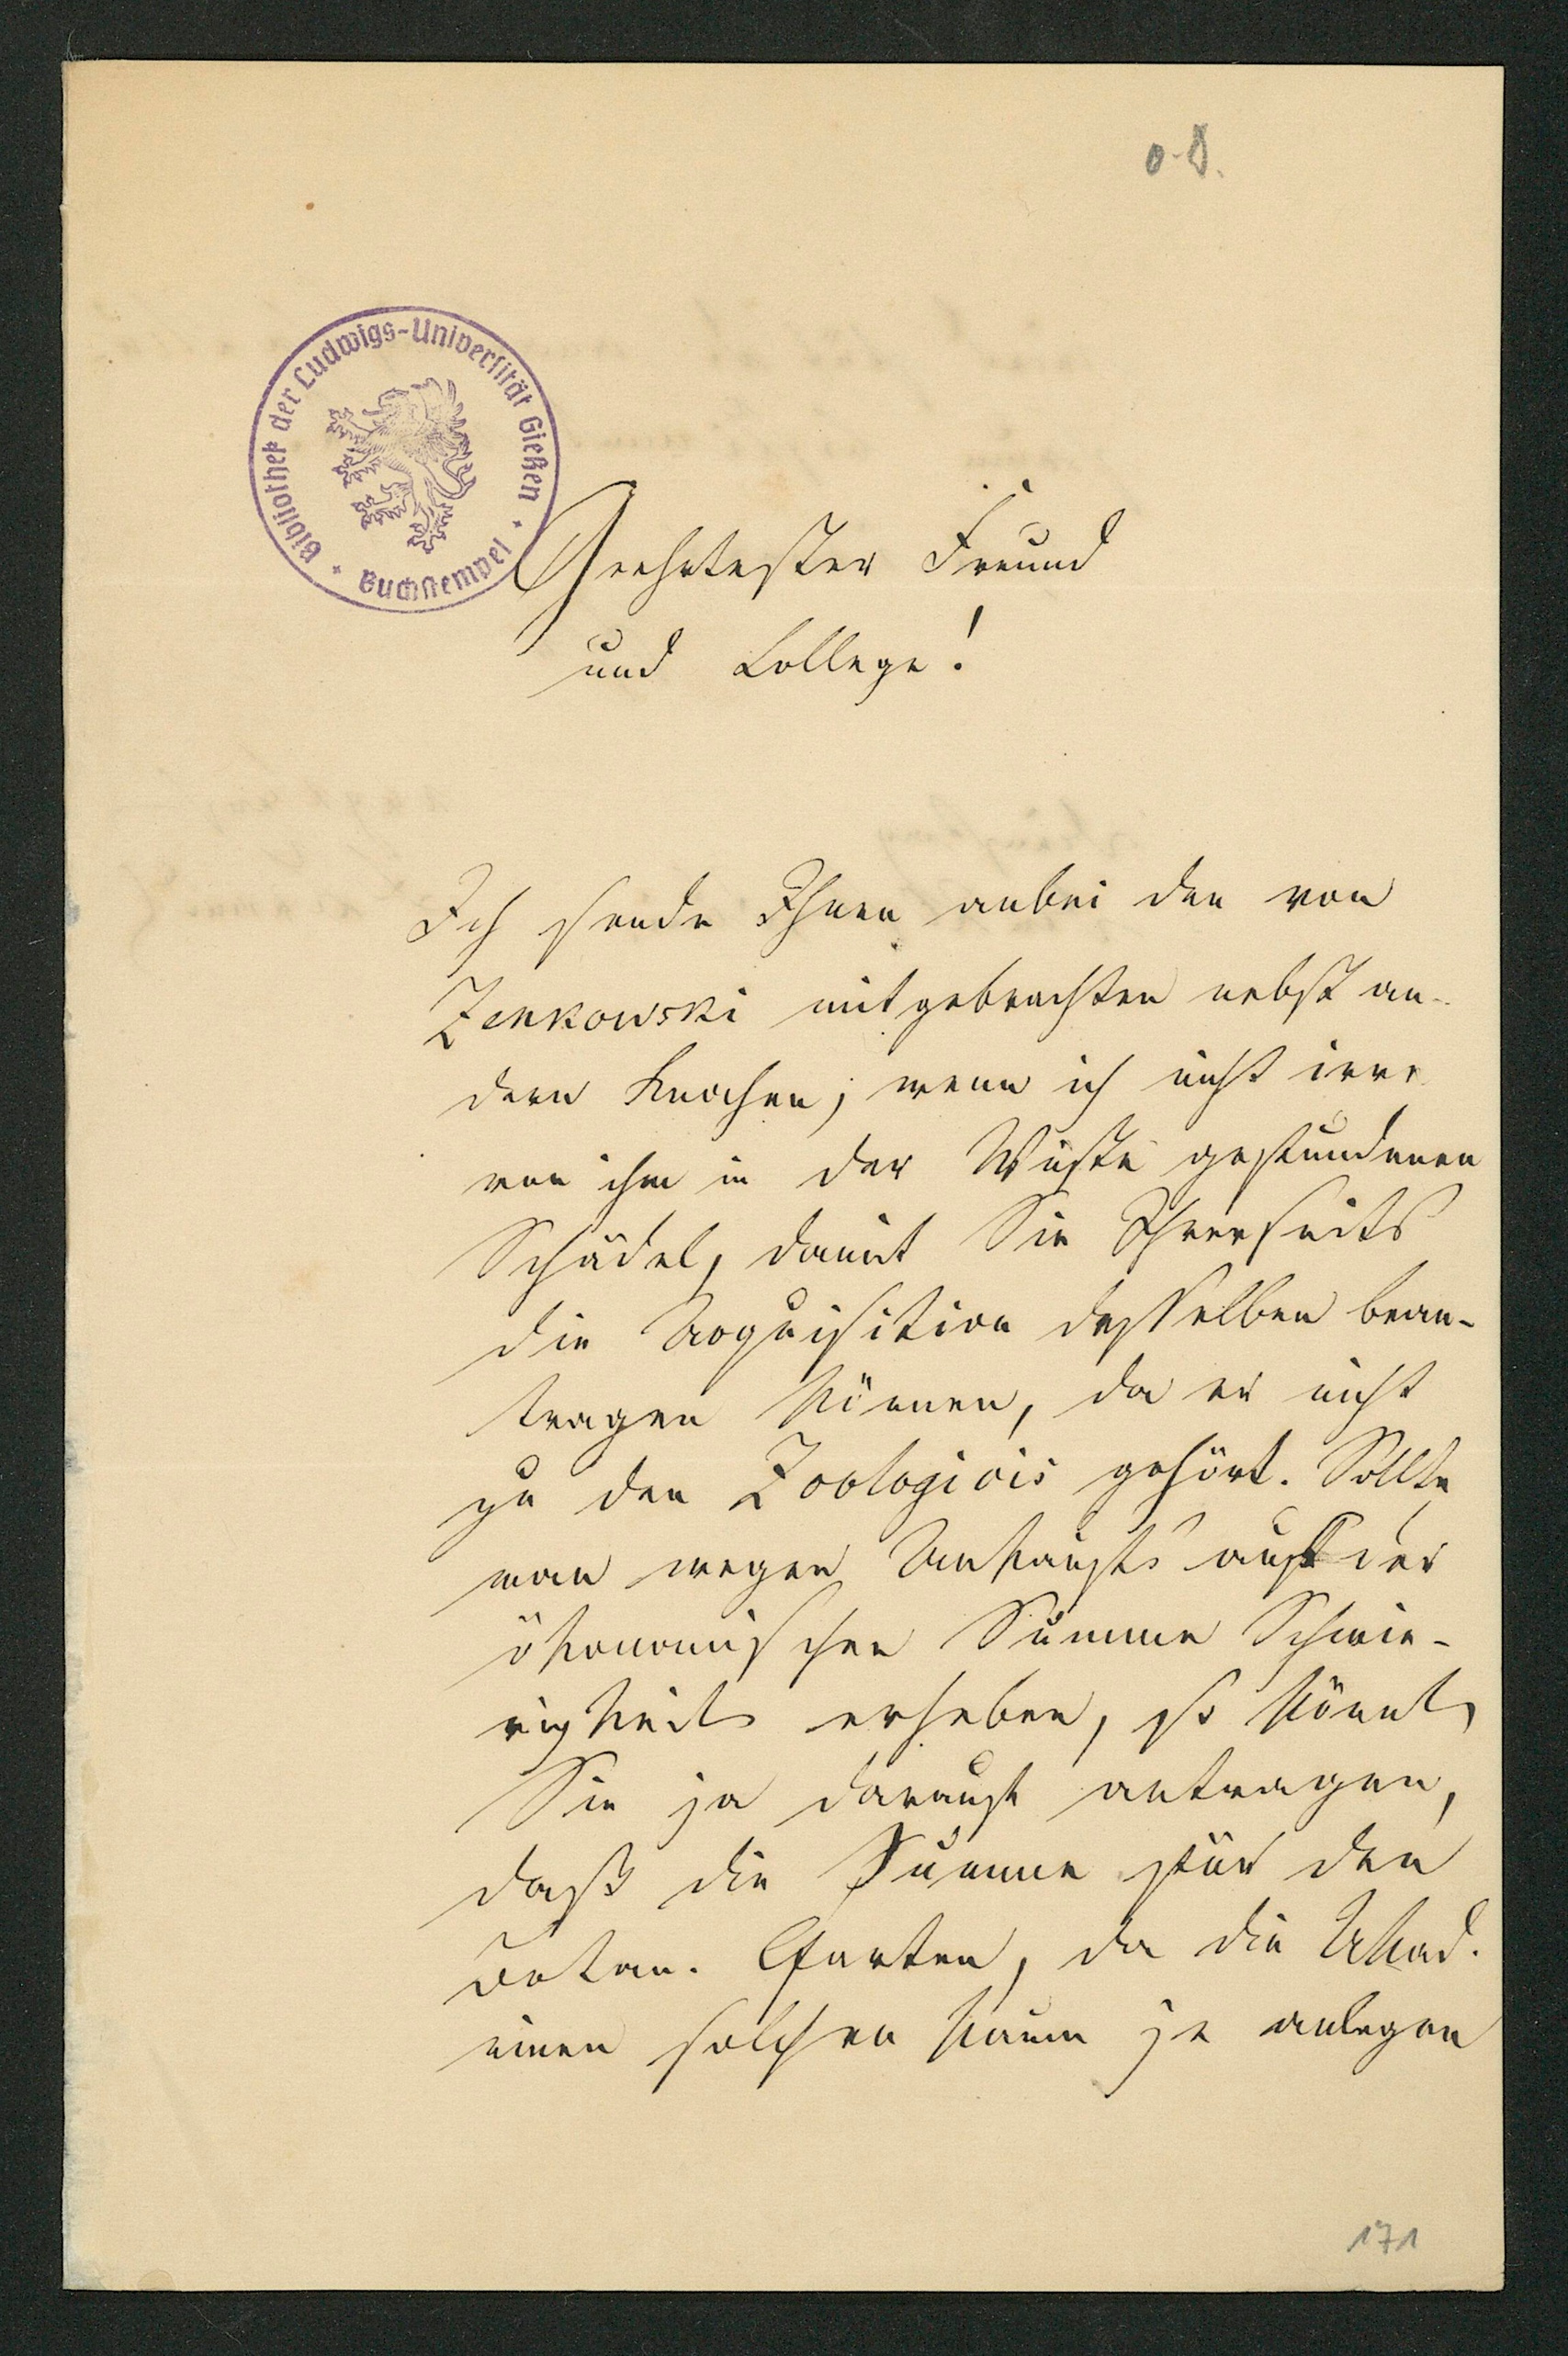 o. D.
Bibliothek der Ludwigs-Universität Gießen
Buchstempel
Geehrtester Freund
und College!
Ich sende Ihnen anbei den von
Zenkowski mitgebrachten nebst an-
dern Knochen, wenn ich nicht irre
von ihm in der Wüste gefundenen
Schädel, damit Sie Ihrerseits
die Acquisition desselben bean-
tragen können, da er nicht
zu den Zoologicis gehört. Sollte
man wegen Ankaufs aus der
ökonomischen Summe Schwie-
rigkeit erheben, so könnt
Sie ja darauf antragen,
daß die Summe für den
botan. Garten, da die Akad.
einen solchen kaum je anlegen
171